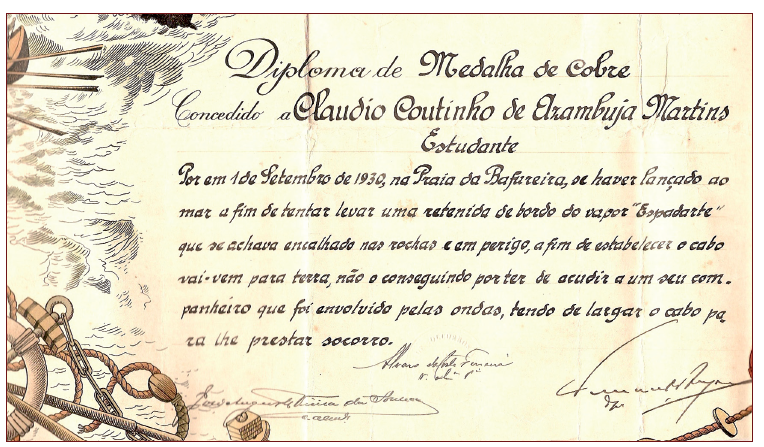 Diploma de Medalha de Cobre
Concedido a Claudio Coutinho de Arambuja Martins
Estudante
Por em 1 de Setembro de 1930, na Praia da Bafureira, se haver lançado ao
mar a fim de tentar levar uma retenida de bordo do vapor "Espadarte"
que se achava encalhado nas rochas e em perigo, a fim de estabelecer o cabo
vai-vem para terra, não o conseguindo por ter de acudir a um seu com-
panheiro que foi envolvido pelas ondas, tendo de largar o cabo pa
ra lhe prestar socorro.
Alvaro